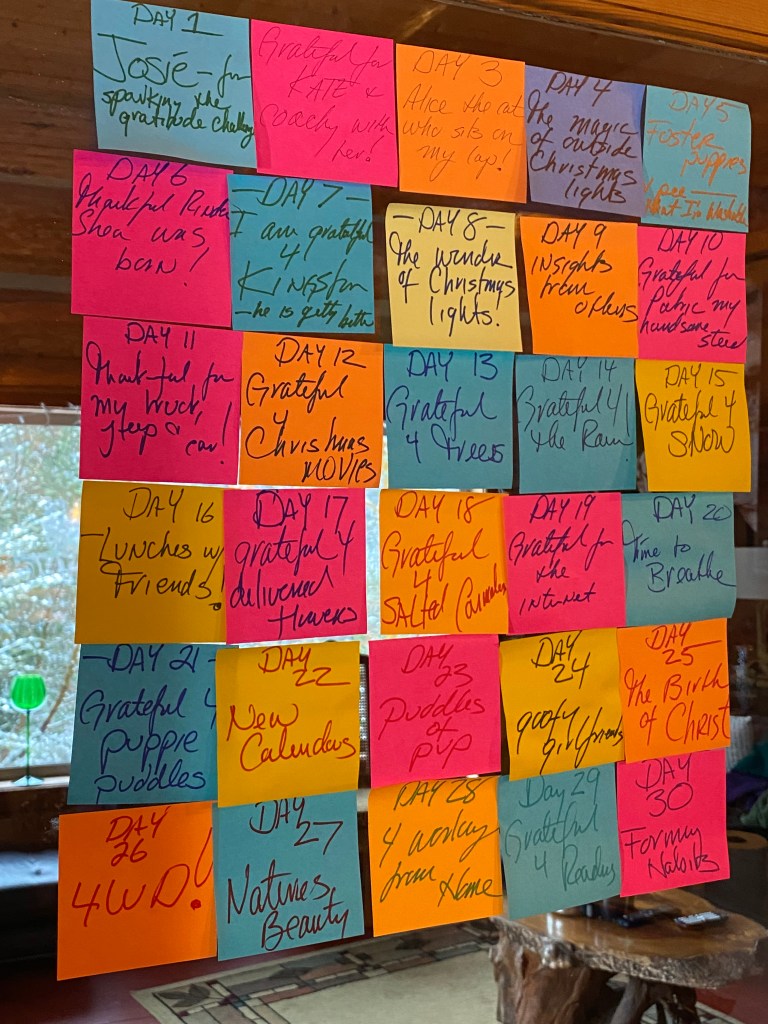 DAY 1
Josie - for
sparking the
gratitude challeng
Grateful for
KATE &
Coach with
her!
DAY 3
Alice the cat
who sits on
my lap!
DAY 4
The magic
of outside
Christmas
lights
DAY 5
Foster
puppies
DAY 6
Thankful
Shea was
born!
- DAY 7 -
I am grateful
4
KINGSton
- he is getting better
- DAY 8 -
The wonder
of Christmas
lights.
DAY 9
INSIGHTS
from
others
DAY 10
Grateful for
my
handsome
steed
DAY 11
Thankful for
my truck,
Jeep &
car!
DAY 12
Grateful
4
Christmas
MOVIES
DAY 13
Grateful
4 Trees
DAY 14
Grateful 4
the Rain!
DAY 15
Grateful 4
SNOW
DAY 16
- LUNCHES w/
Friends!
DAY 17
grateful 4
delivered
flowers
DAY 18
Grateful
4
SAlted
DAY 19
Grateful for
the
INTERNET
DAY 20
Time to
Breathe
- DAY 21 -
Grateful 4
puppie
puddles
DAY
22
New
Calendars
DAY
23
Puddles
of
pup
DAY
24
goofy
girlfriends
DAY
25
The Birth
of Christ
DAY
26
4WD!
DAY
27
Natures
Beauty
DAY 28
4 working
from
Home
Day 29
Grateful
4 Readers
DAY
30
Forming
Habits